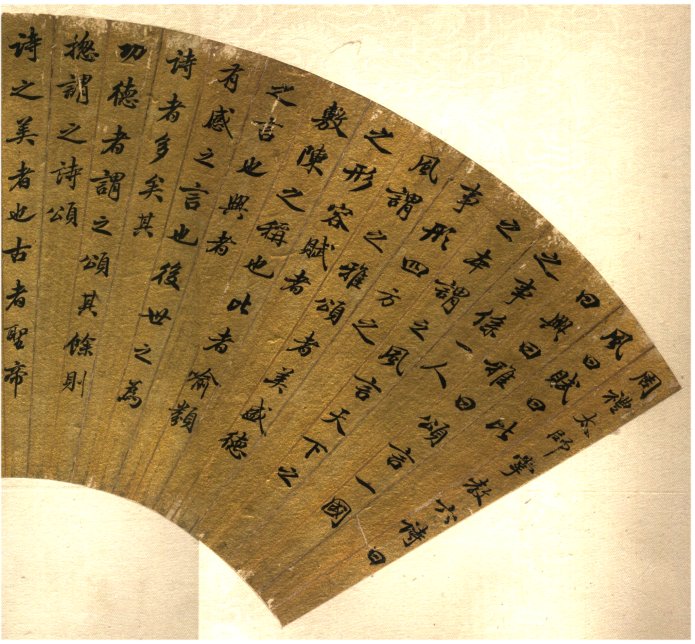 周禮太師掌教六詩曰
風曰賦曰比
曰興曰雅曰頌言一國
之事係一人
之本謂之風言天下之
事形四方之
風謂之雅頌者美盛德
之形容賦者
敷陳之稱也比者喻類
之言也興者
有感之言也後世之為
詩者多矣其
功德者謂之頌其餘則
揔謂之詩頌
詩之美者也古者聖帝